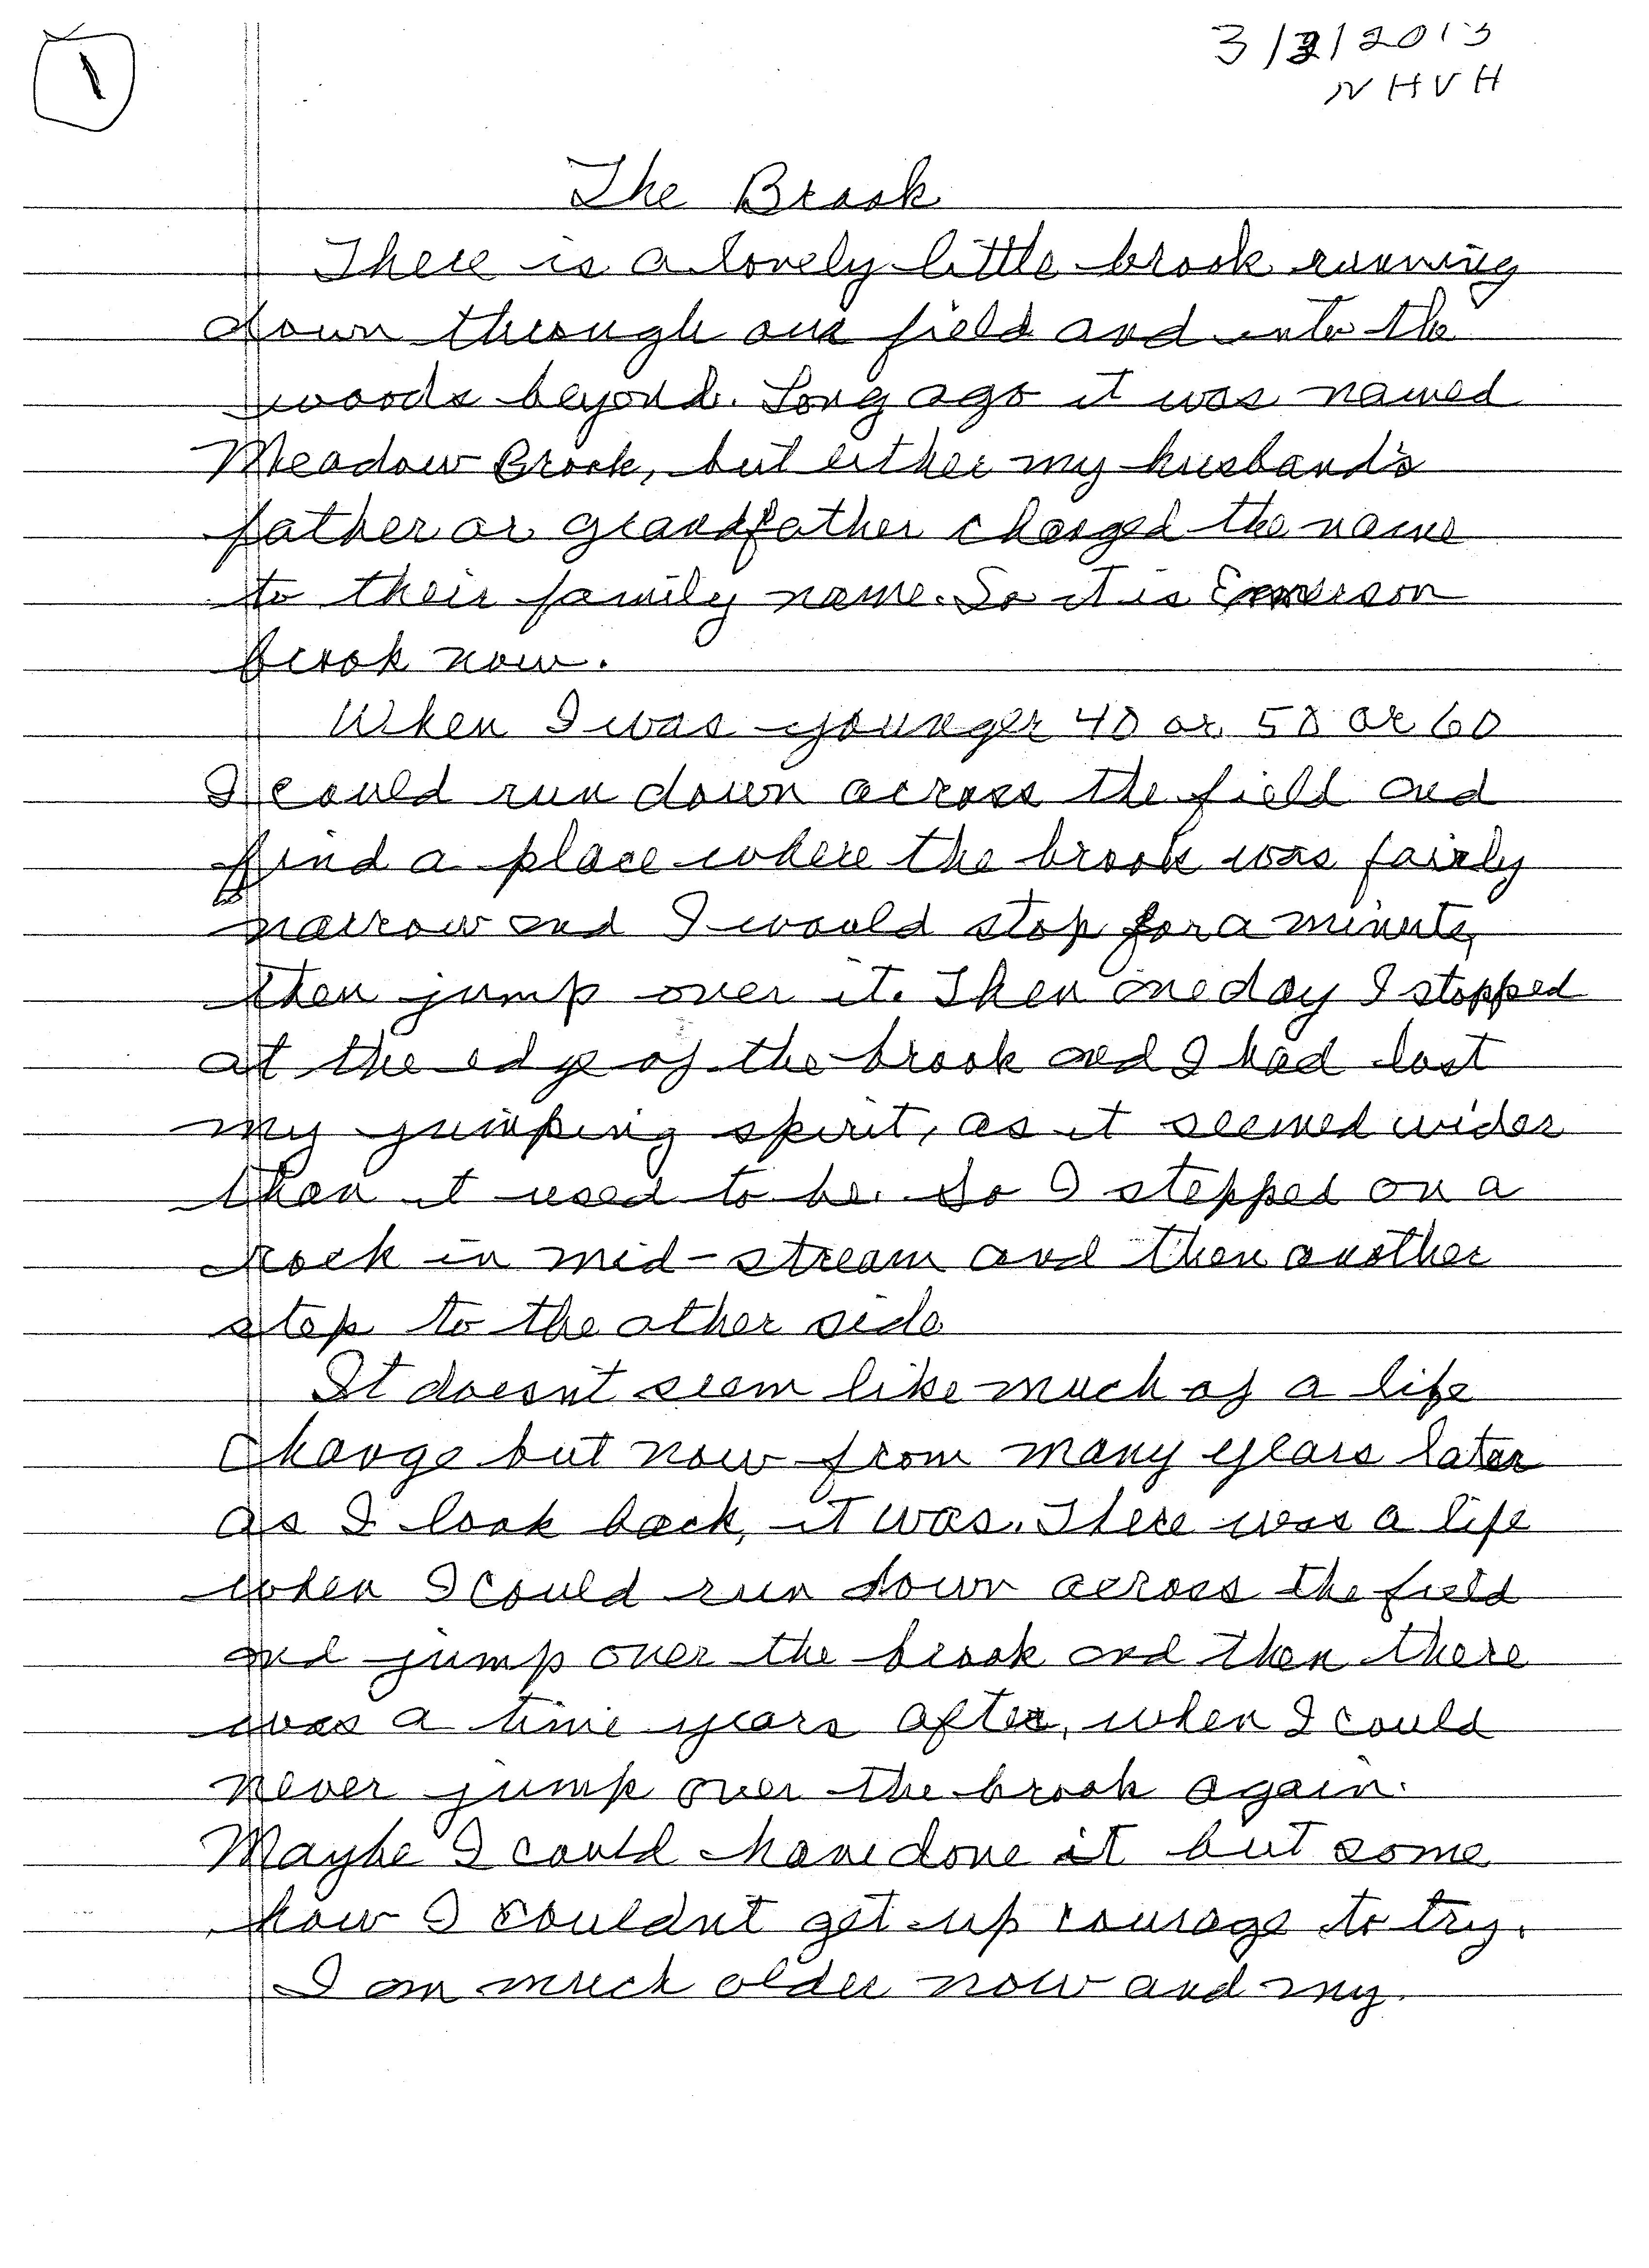 1
3/2/2013
NHVH
The Brook
There is a lovely little brook running
down through our field and into the
woods beyond. Long ago it was named
Meadow Brook, but either my husband's
father or grandfather changed the name
to their family name. So it is Emerson
brook now.
When I was younger 40 or 50 or 60
I could run down across the field and
find a place where the brook was fairly
narrow and I would stop for a minute,
then jump over it. Then one day I stopped
at the edge of the brook and I had lost
my jumping spirit, as it seemed wider
than it used to be. So I stepped on a
rock in mid-stream and then another
step to the other side
It doesn't seem like much of a life
change but now from many years later
as I look back, it was. There was a life
when I could run down across the field
and jump over the brook and then there
was a time years after, when I could
never jump over the brook again.
Maybe I could have done it but some
how I couldn't get up courage to try.
I am much older now and my